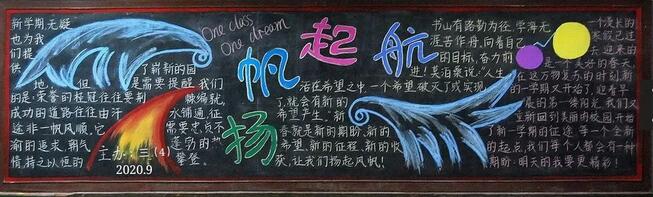 新学期无疑
也为我
们提
供
了崭新的园
地，但是需要提醒我们
的是：荣誉的桂冠往往要荆棘编就，
成功的道路往往由汗水铺通，征
途非一帆风顺，它需要忠贞不
渝的追求，朝气蓬勃的
情持之以恒的攀登。
主办：三(4)
2020.9
One class
One dream
扬帆起航
书山有路勤为径，学海无
涯苦作舟，向着自己
的目标，奋力前
进！吴泊泰说："人生
活在希望之中，一个希望破灭了或实现
了，就会有新的
希望产生。"新
春就是新的期盼、新的
希望、新的征程、新的收
获，让我们扬起风帆！
一个漫长的
寒假已过
去，迎来的
是一个美好的春天，
在这万物复苏的时刻，新
的一学期又开始了，迎着早
晨的第一缕阳光，我们又
重新回到美丽的校园，开始
了新学期的征途，每一个全新
的起点，我们每个人都会有一种
期盼：明天的我要更精彩！